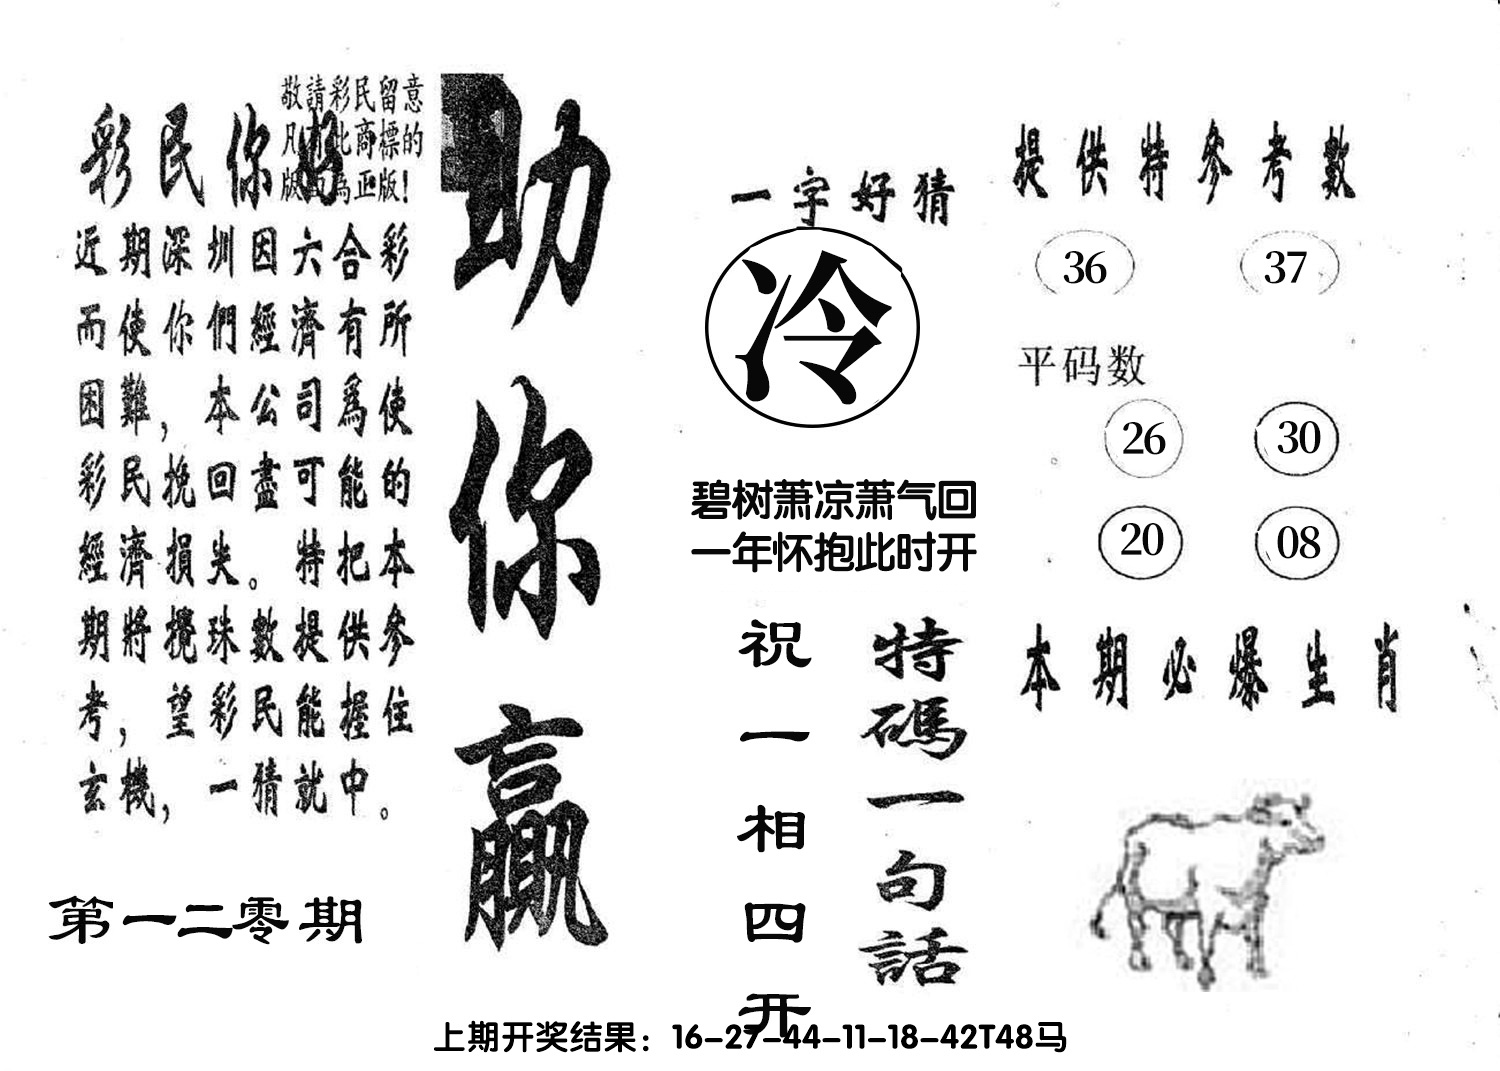 敬請彩民留意
凡有此商標的
版面為正版！
彩民你好
近期深圳因六合彩
而使你們經濟有所
困難，本公司爲使
彩民挽回盡可能的
經濟損失。特把本
期將攪珠數提供參
考，望彩民能握住
玄機，一猜就中。
第一二零期
助你贏
一字好猜
冷
碧树萧凉萧气回
一年怀抱此时开
特碼一句話
祝一相四开
提供特參考數
36 37
平码数
26 30
20 08
本期必爆生肖
上期开奖结果：16-27-44-11-18-42T48马